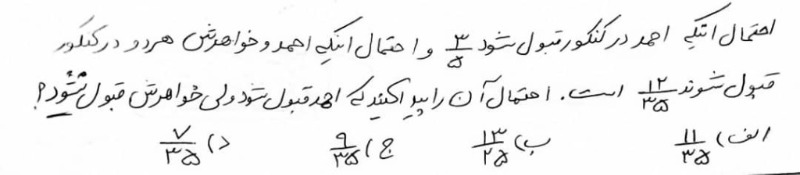 احتمال اینکه احمد در کنکور قبول شود ۳/۵ و احتمال اینکه احمد و خواهرش هر دو در کنکور
قبول شوند ۱۲/۳۵ است. احتمال آن را پیدا کنید که احمد قبول شود ولی خواهرش قبول نشود؟
الف) ۱۱/۳۵ ب) ۱۳/۲۵ ج) ۹/۳۵ د) ۷/۳۵